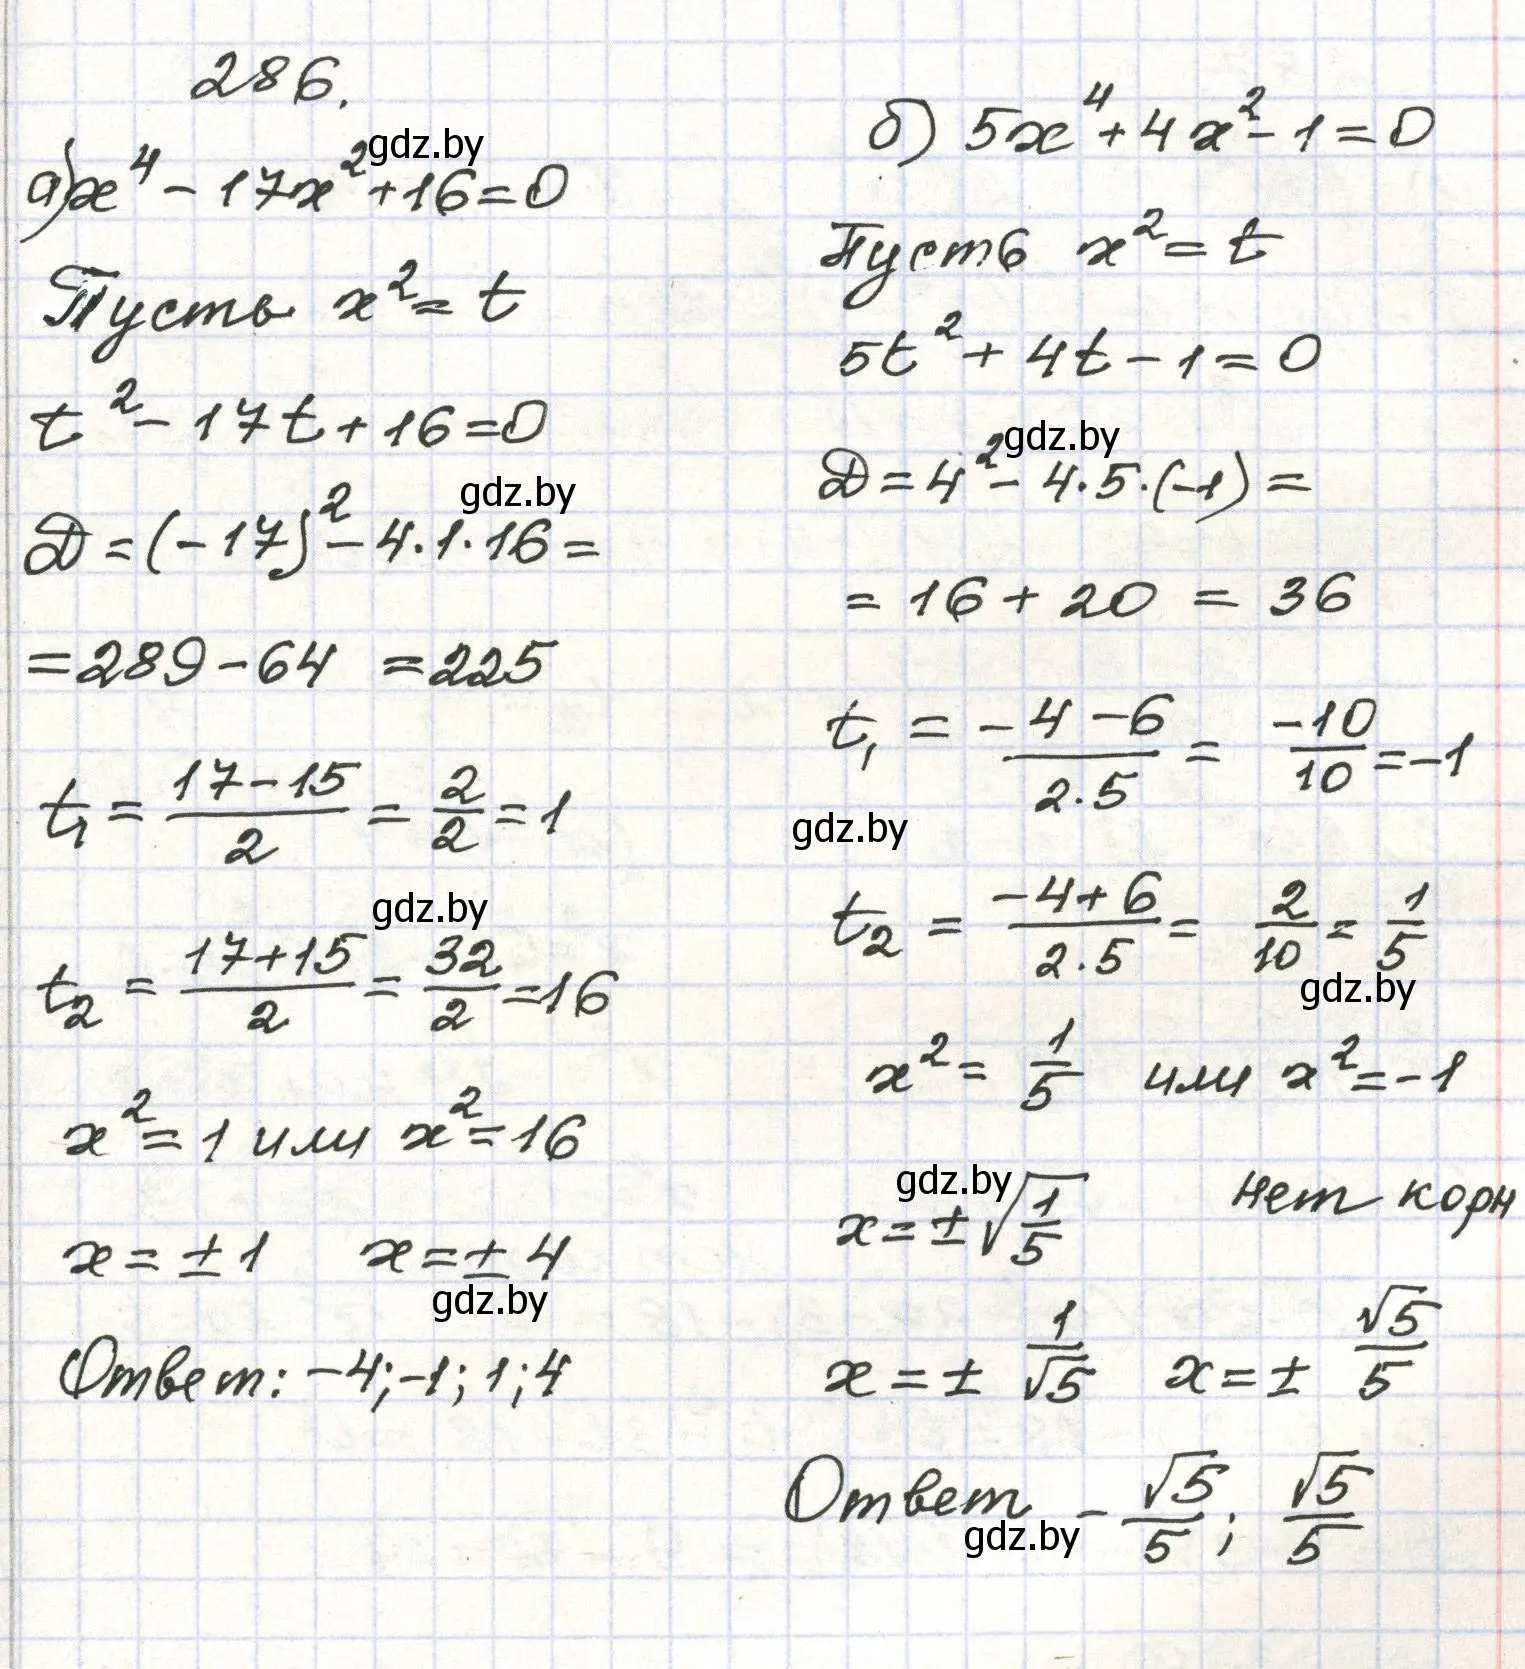 286.
а) x⁴ - 17x² + 16 = 0
Пусть x² = t
t² - 17t + 16 = 0
D = (-17)² - 4·1·16 =
= 289 - 64 = 225
t₁ = (17-15)/2 = 2/2 = 1
t₂ = (17+15)/2 = 32/2 = 16
x² = 1 или x² = 16
x = ±1 x = ±4
Ответ: -4; -1; 1; 4
б) 5x⁴ + 4x² - 1 = 0
Пусть x² = t
5t² + 4t - 1 = 0
D = 4² - 4·5·(-1) =
= 16 + 20 = 36
t₁ = (-4-6)/(2·5) = -10/10 = -1
t₂ = (-4+6)/(2·5) = 2/10 = 1/5
x² = 1/5 или x² = -1
x = ±√(1/5) нет корн
x = ± 1/√5 x = ± √5/5
Ответ -√5/5; √5/5
gdz.by
gdz.by
gdz.by
gdz.by
gdz.by
gdz.by
gdz.by
gdz.by
gdz.by